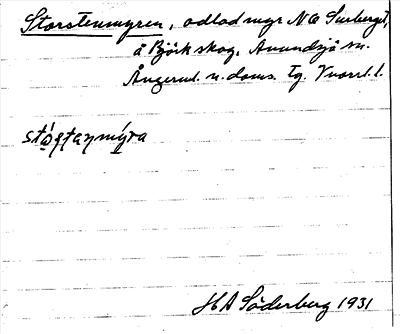 Storstenmyren, odlad myr NO Surberget,
å Björk skog, Anundsjö sn.
Ångerml. n. doms. tg. Vnorrl. l.
HA Söderberg 1931